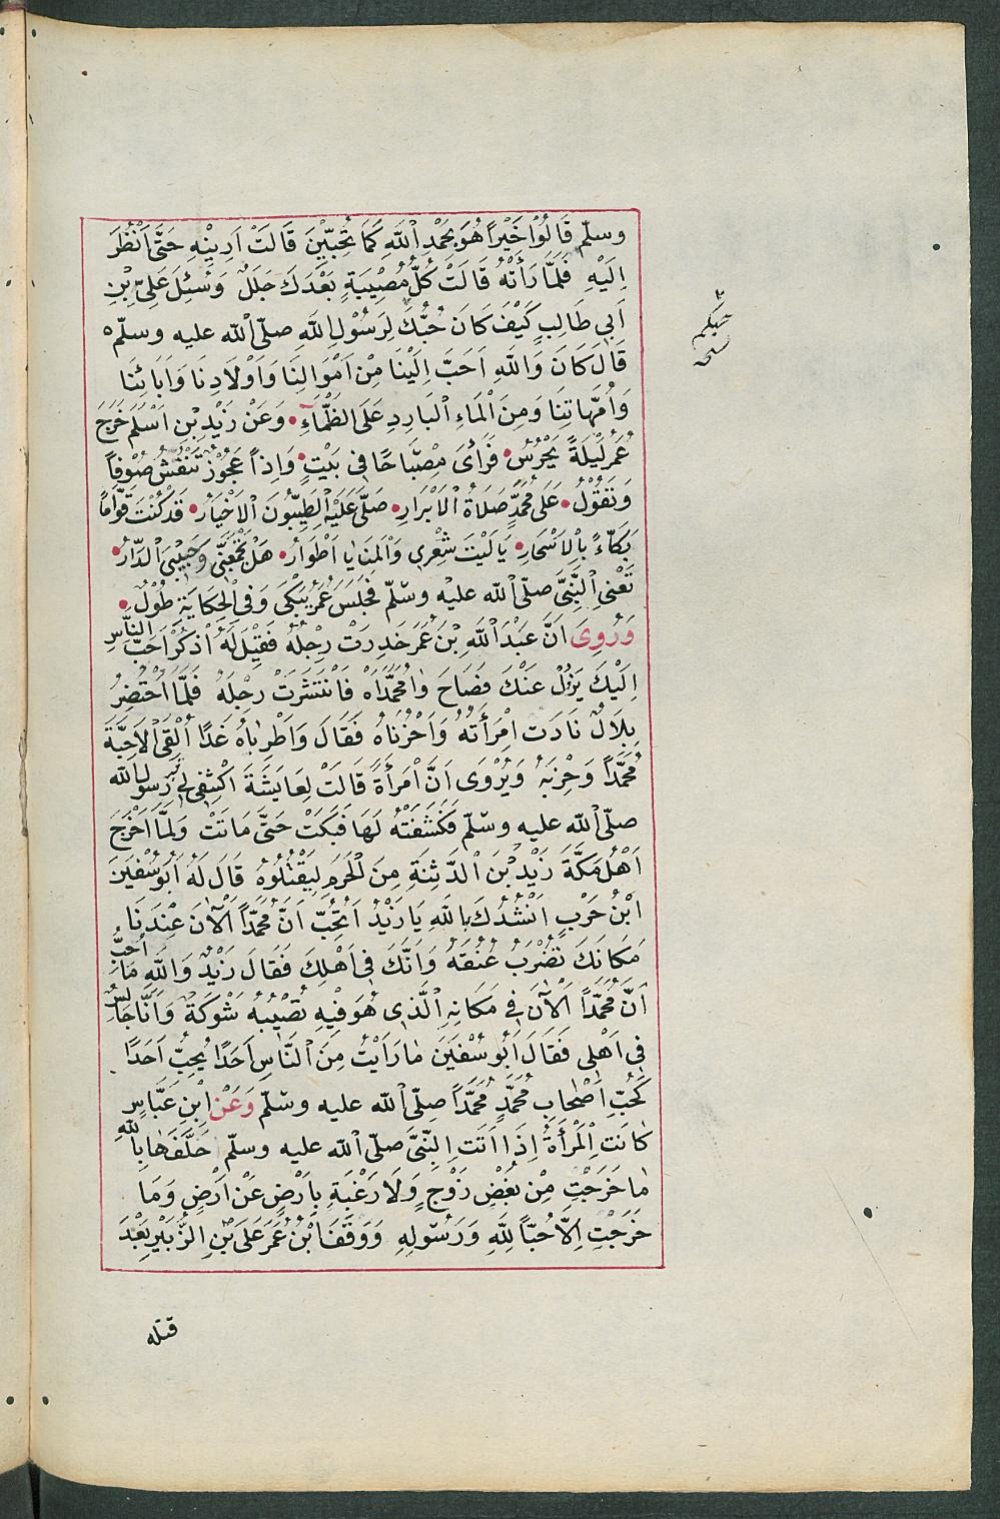 وسلّم قَالُوا خَيْراً هُوَ بِحَمْدِ اللّٰهِ كَمَا تُحِبِّيْنَ قَالَتْ اَرِنِيْهِ حَتَّى اَنْظُرَ
اِلَيْهِ فَلَمَّا رَأَتْهُ قَالَتْ كُلُّ مُصِيْبَةٍ بَعْدَكَ جَلَلٌ وَسُئِلَ عَلِيُّ بْنِ
اَبِي طَالِبٍ كَيْفَ كَانَ حُبُّكَ لِرَسُوْلِ اللّٰهِ صلّى اللّٰه عليه وسلّم
قَالَ كَانَ وَاللّٰهِ اَحَبَّ اِلَيْنَا مِنْ اَمْوَالِنَا وَاَوْلَادِنَا وَاٰبَائِنَا
وَاُمَّهَاتِنَا وَمِنَ الْمَاءِ الْبَارِدِ عَلَى الظَّمَاءِ وَعَنْ زَيْدِ بْنِ اَسْلَمَ خَرَجَ
عُمَرُ لَيْلَةً يَحْرُسُ فَرَأَى مِصْبَاحًا فِي بَيْتٍ وَاِذَا عَجُوْزٌ تَنْفُشُ صُوْفاً
وَتَقُوْلُ عَلَى مُحَمَّدٍ صَلَاةُ الْاَبْرَارِ صَلَّى عَلَيْهِ الطَّيِّبُوْنَ الْاَخْيَارُ قَدْ كُنْتَ قَوَّامًا
بَكَّاءً بِالْاَسْحَارِ يَا لَيْتَ شِعْرِى وَالْمَنَايَا اَطْوَارُ هَلْ تَجْمَعُنِي وَحَبِيْبِيَ الدَّارُ
تَعْنِي النَّبِيَّ صلّى اللّٰه عليه وسلّم فَجَلَسَ عُمَرُ يَبْكِى وَفِي الْحِكَايَةِ طُوْلٌ
وَرُوِىَ اَنَّ عَبْدَ اللّٰهِ بْنَ عُمَرَ خَدِرَتْ رِجْلُهُ فَقِيْلَ لَهُ اُذْكُرْ اَحَبَّ النَّاسِ
اِلَيْكَ يَزُلْ عَنْكَ فَصَاحَ وَامُحَمَّدَاهْ فَانْتَشَرَتْ رِجْلُهُ فَلَمَّا احْتُضِرَ
بِلَالٌ نَادَتِ امْرَأَتُهُ وَاحُزْنَاهُ فَقَالَ وَاطَرَبَاهُ غَدًا اَلْقَى الْاَحِبَّةَ
مُحَمَّداً وَحِزْبَهُ وَيُرْوَى اَنَّ امْرَأَةً قَالَتْ لِعَايِشَةَ اكْشِفِي لِي قَبْرَ رسول اللّٰه
صلّى اللّٰه عليه وسلّم فَكَشَفَتْهُ لَهَا فَبَكَتْ حَتَّى مَاتَتْ وَلَمَّا اَخْرَجَ
اَهْلُ مَكَّةَ زَيْدَ بْنَ الدَّثِنَةِ مِنَ الْحَرَمِ لِيَقْتُلُوْهُ قَالَ لَهُ اَبُوْ سُفْيَنَ
ابْنُ حَرْبٍ اَنْشُدُكَ بِاللّٰهِ يَا زَيْدُ اَتُحِبُّ اَنَّ مُحَمَّدًا الْاٰنَ عِنْدَنَا
مَكَانَكَ تُضْرَبُ عُنُقُهُ وَاَنَّكَ فِي اَهْلِكَ فَقَالَ زَيْدٌ وَاللّٰهِ مَا اُحِبُّ
اَنَّ مُحَمَّداً الْاٰنَ فِي مَكَانِهِ الَّذِى هُوَ فِيْهِ تُصِيْبُهُ شَوْكَةٌ وَاَنَا جَالِسٌ
فِي اَهْلِى فَقَالَ اَبُو سُفْيَنَ مَا رَاَيْتُ مِنَ النَّاسِ اَحَدًا يُحِبُّ اَحَدًا
كَحُبِّ اَصْحَابِ مُحَمَّدٍ مُحَمَّدًا صلّى اللّٰه عليه وسلّم وَعَنْ ابْنِ عَبَّاسٍ
كَانَتِ الْمَرْأَةُ اِذَا اَتَتِ النَّبِيَّ صلّى اللّٰه عليه وسلّم حَلَّفَهَا بِاللّٰهِ
مَا خَرَجْتِ مِنْ بُغْضِ زَوْجٍ وَلَا رَغْبَةٍ بِاَرْضٍ عَنْ اَرْضٍ وَمَا
خَرَجْتِ اِلَّا حُبًّا لِلّٰهِ وَرَسُوْلِهِ وَوَقَفَ ابْنُ عُمَرَ عَلَى بْنِ الزُّبَيْرِ بَعْدَ
قتله